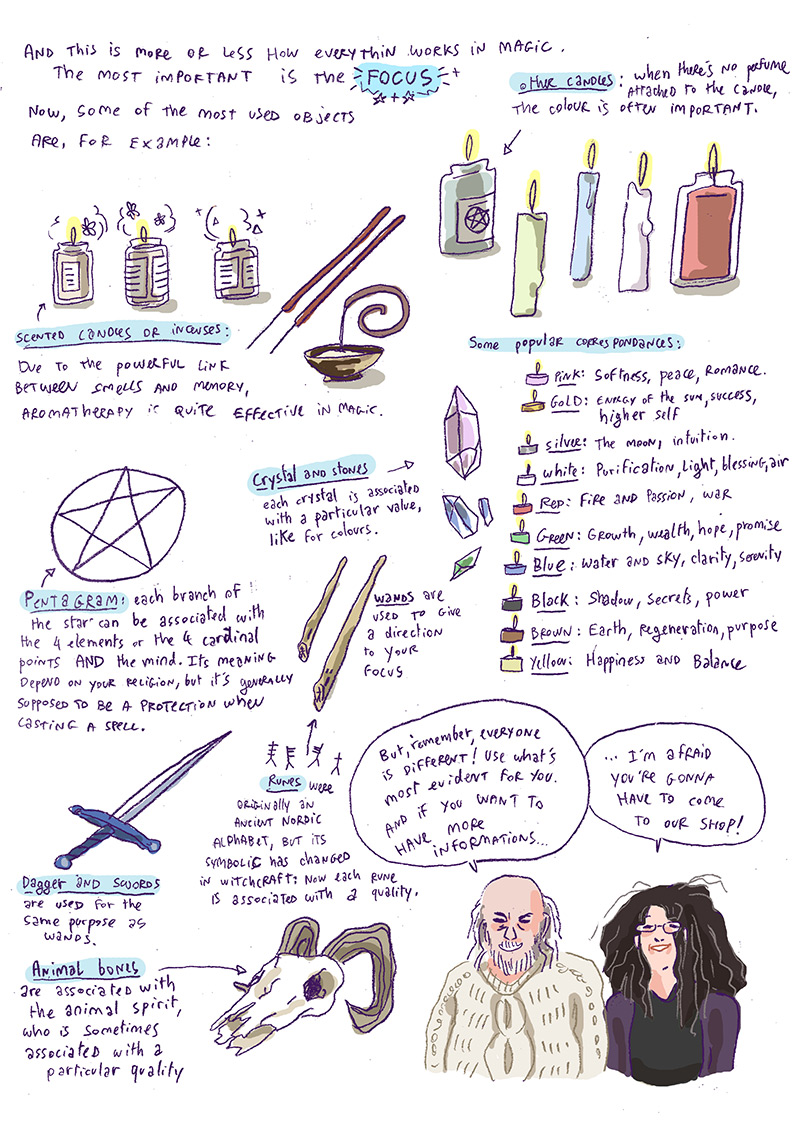 AND THIS IS MORE OR LESS HOW EVERYTHIN WORKS IN MAGIC.
THE MOST IMPORTANT IS THE FOCUS
NOW, SOME OF THE MOST USED OBJECTS
ARE, FOR EXAMPLE:
OTHER CANDLES: WHEN THERE'S NO PERFUME
ATTACHED TO THE CANDLE,
THE COLOUR IS OFTEN IMPORTANT.
SCENTED CANDLES OR INCENSES:
DUE TO THE POWERFUL LINK
BETWEEN SMELLS AND MEMORY,
AROMATHERAPY IS QUITE EFFECTIVE IN MAGIC.
Some popular correspondances:
Pink: Softness, peace, Romance.
Gold: Energy of the sun, success,
higher self
Silver: The moon, intuition.
White: Purification, Light, blessing, air
Red: Fire and Passion, war
Green: Growth, wealth, hope, promise
Blue: Water and sky, clarity, serenity
Black: Shadow, Secrets, power
Brown: Earth, Regeneration, purpose
Yellow: Happiness and Balance
Crystal and stones
each crystal is associated
with a particular value,
like for colours.
PENTAGRAM: each branch of
the star can be associated with
the 4 elements or the 4 cardinal
points AND the mind. Its meaning
Depend on your religion, but it's generally
supposed to be a protection when
casting a spell.
WANDS are
used to give
a direction
to your
FOCUS
Runes were
originally an
ancient Nordic
alphabet, but its
symbolic has changed
in witchcraft: Now each rune
is associated with a quality.
Dagger and swords
are used for the
same purpose as
wands.
Animal bones
are associated with
the animal spirit,
who is sometimes
associated with a
particular quality
But, remember, everyone
is different! Use what's
most evident for you.
And if you want to
have more
informations...
... I'm afraid
you're gonna
have to come
to our shop!